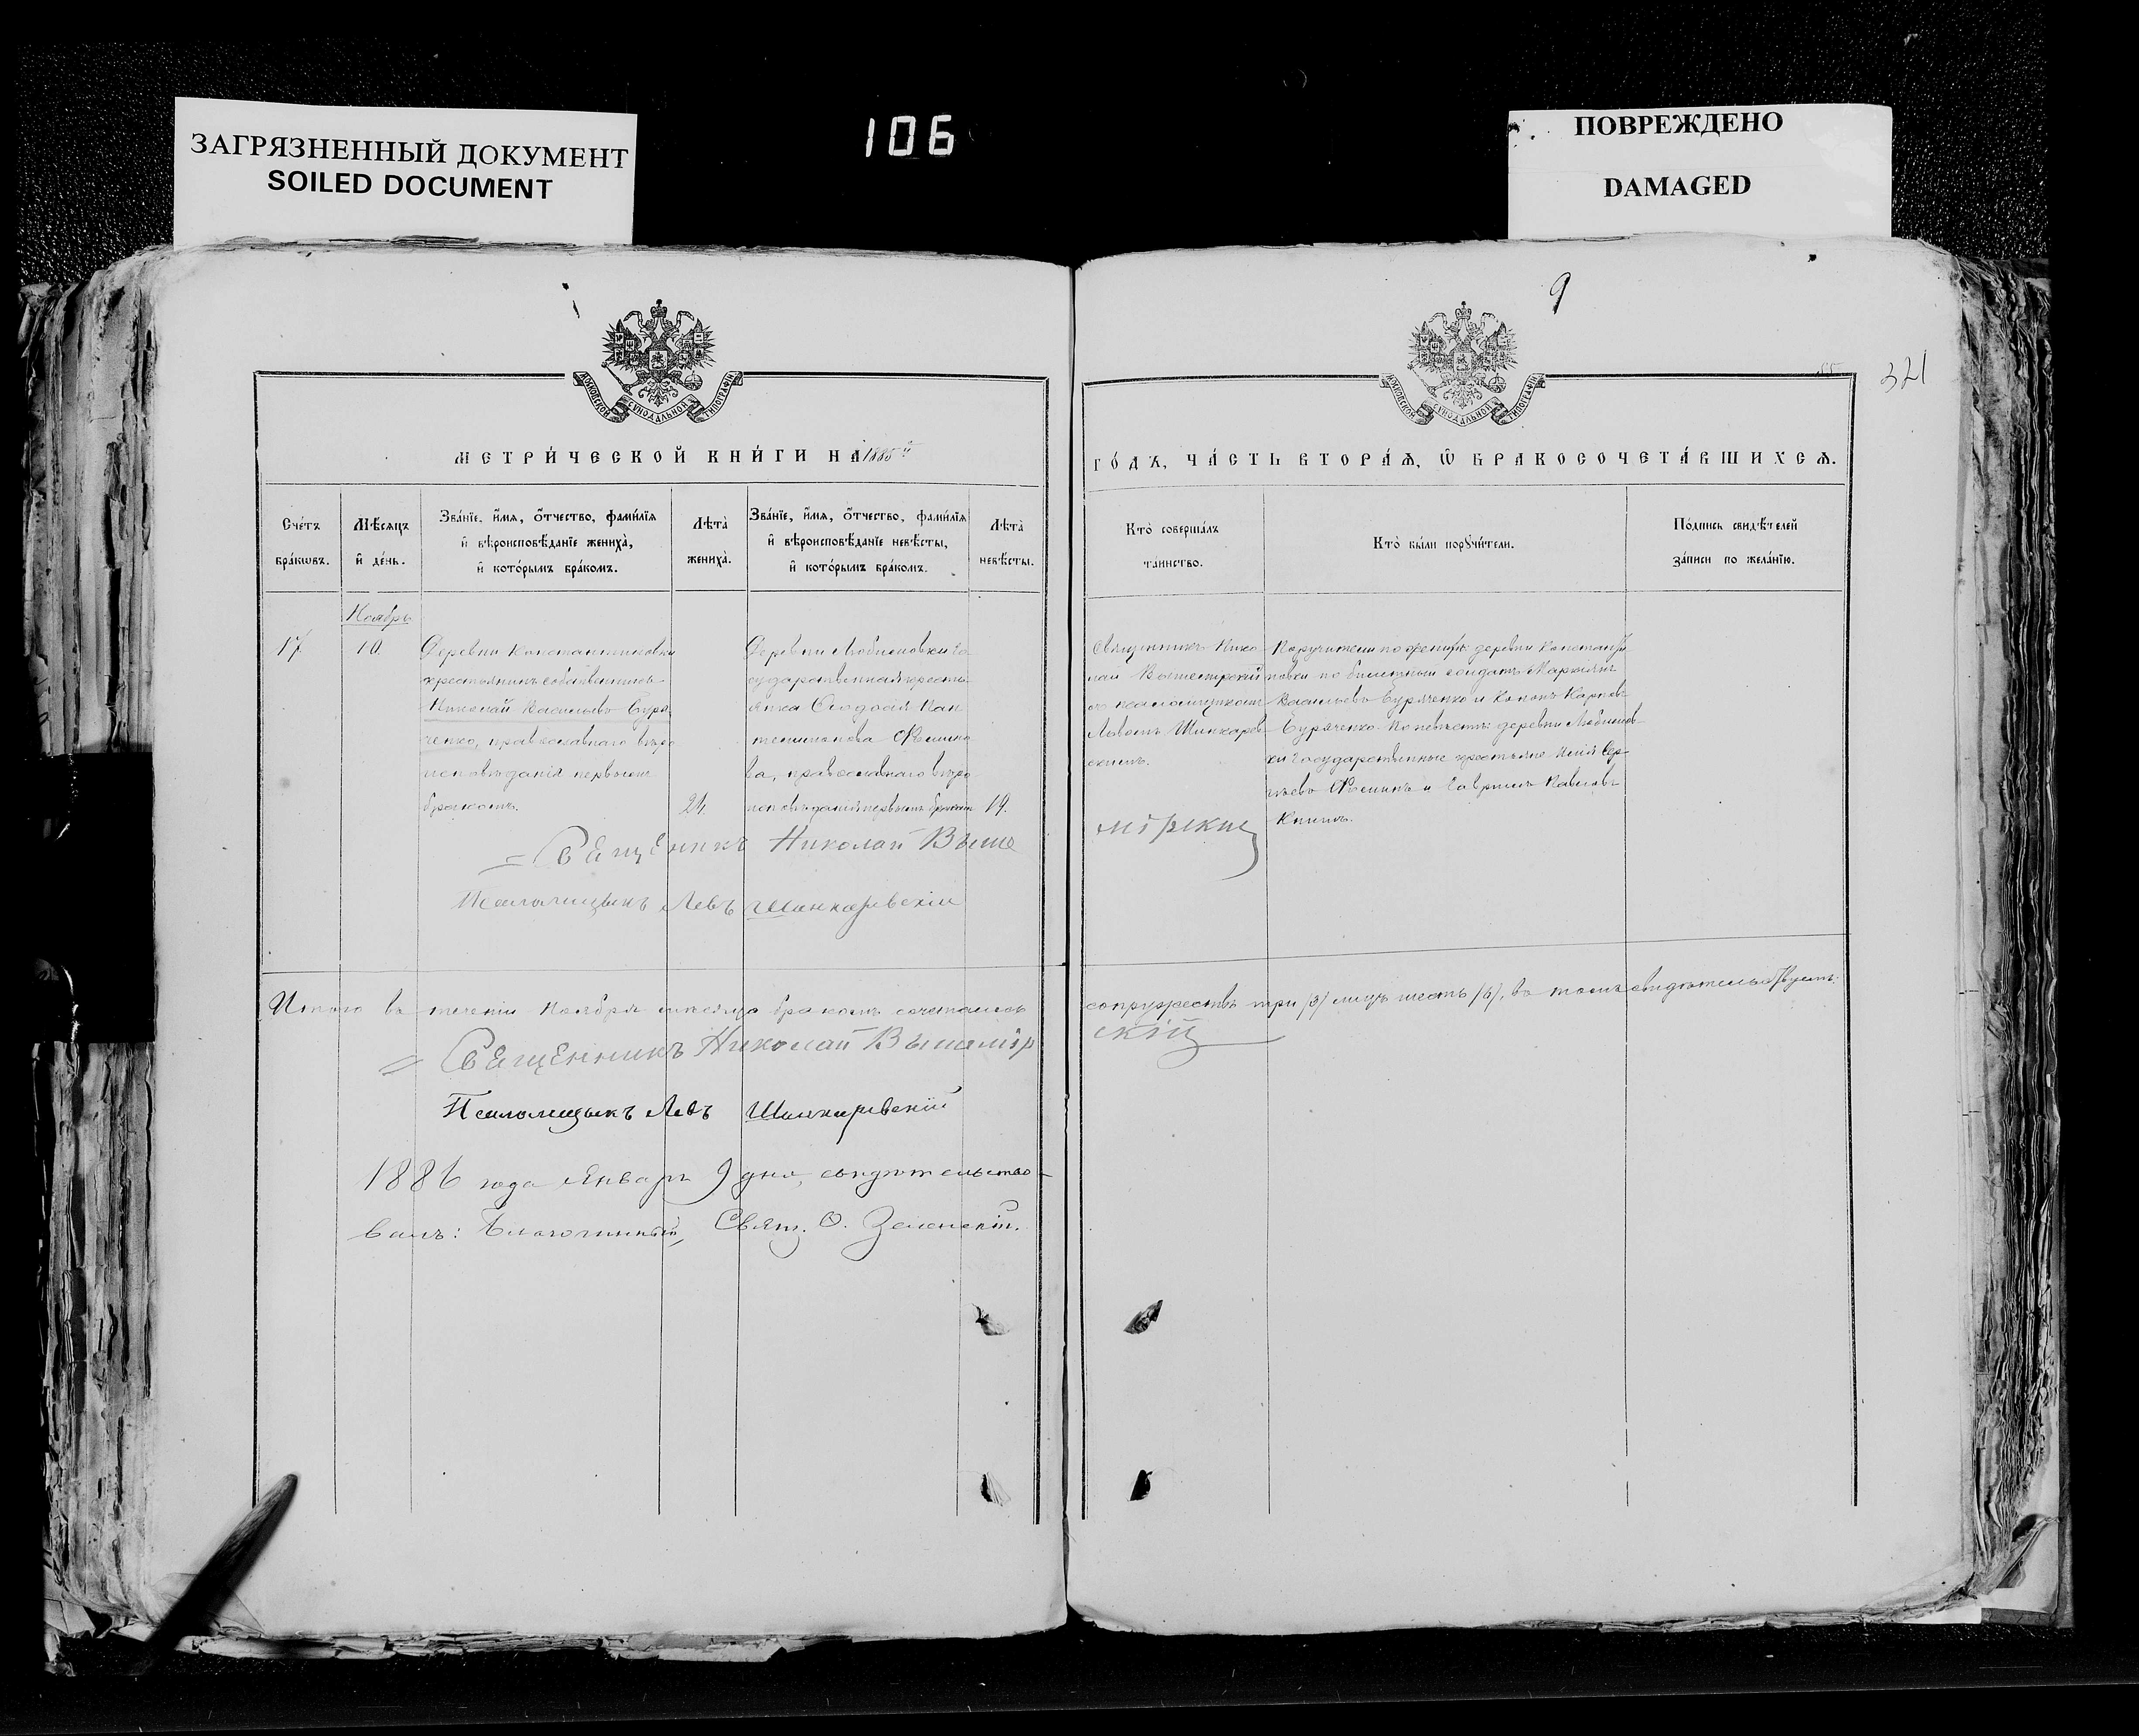 ЗАГРЯЗНЕННЫЙ ДОКУМЕНТ
SOILED DOCUMENT
106
ПОВРЕЖДЕНО
DAMAGED
9
321
МОСКОВСКОЙ СѴНОДАЛЬНОЙ ТИПОГРАФІИ
МОСКОВСКОЙ СѴНОДАЛЬНОЙ ТИПОГРАФІИ
МЕТРИ́ЧЕСКОЙ КНИ́ГИ НА 1885й
ГО́ДЪ, ЧА́СТЬ ВТОРА́Ѧ, Ѽ БРАКОСОЧЕТА́ВШИХСѦ.
Сче́тъ бра́кѡвъ.
Мѣ́сѧцъ и҆ де́нь.
Зва́нїе, и҆́мѧ, ѻ҆́тчество, фами́лїѧ и҆ вѣроисповѣ́данїе жениха̀, и҆ кото́рымъ бра́комъ.
Лѣта̀ жениха̀.
Зва́нїе, и҆́мѧ, ѻ҆́тчество, фами́лїѧ и҆ вѣроисповѣ́данїе невѣ́сты, и҆ кото́рымъ бра́комъ.
Лѣта̀ невѣ́сты.
Кто̀ соверша́лъ та́инство.
Кто̀ бы́ли порꙋчи́тели.
По́дпись свидѣ́телей за́писи по жела́нїю.
Ноябрь
17
10.
Деревни Константиновки
крестьянинъ собственникъ
Николай Васильевъ Буря
ченко, православнаго вѣро
исповѣданія первымъ
бракомъ.
24.
Деревни Любимовки го
сударственная кресть
янка Феодосія Пан
телимонова Фомино
ва, православнаго вѣро
исповѣданія первымъ бракомъ
19.
Священникъ Нико
лай Вышемірскій
съ псаломщикомъ
Львомъ Шинкарев
скимъ.
Поручители по женихѣ: деревни Константи
новки по билетный солдатъ Маркіянъ
Васильевъ Буряченко и Кононъ Карповъ
Буряченко. По невѣстѣ: деревни Любимов
ки государственные крестьяне Илія Сер
гѣевъ Фоминъ и Гавріилъ Павловъ
Священникъ Николай Выше
мірскій
Псаломщикъ Левъ Шинкаревскій
Итого въ теченіи Ноября мѣсяца бракомъ сочеталось
супружествъ три /3/ лицъ шесть /6/, въ томъ свидѣтельствуемъ:
Священникъ Николай Вышемір
скій
Псаломщикъ Левъ Шинкаревскій
1886 года Январь 9 дня, свидѣтельство
валъ: Благочинный, Свящ. Ѳ. Зеленскій.